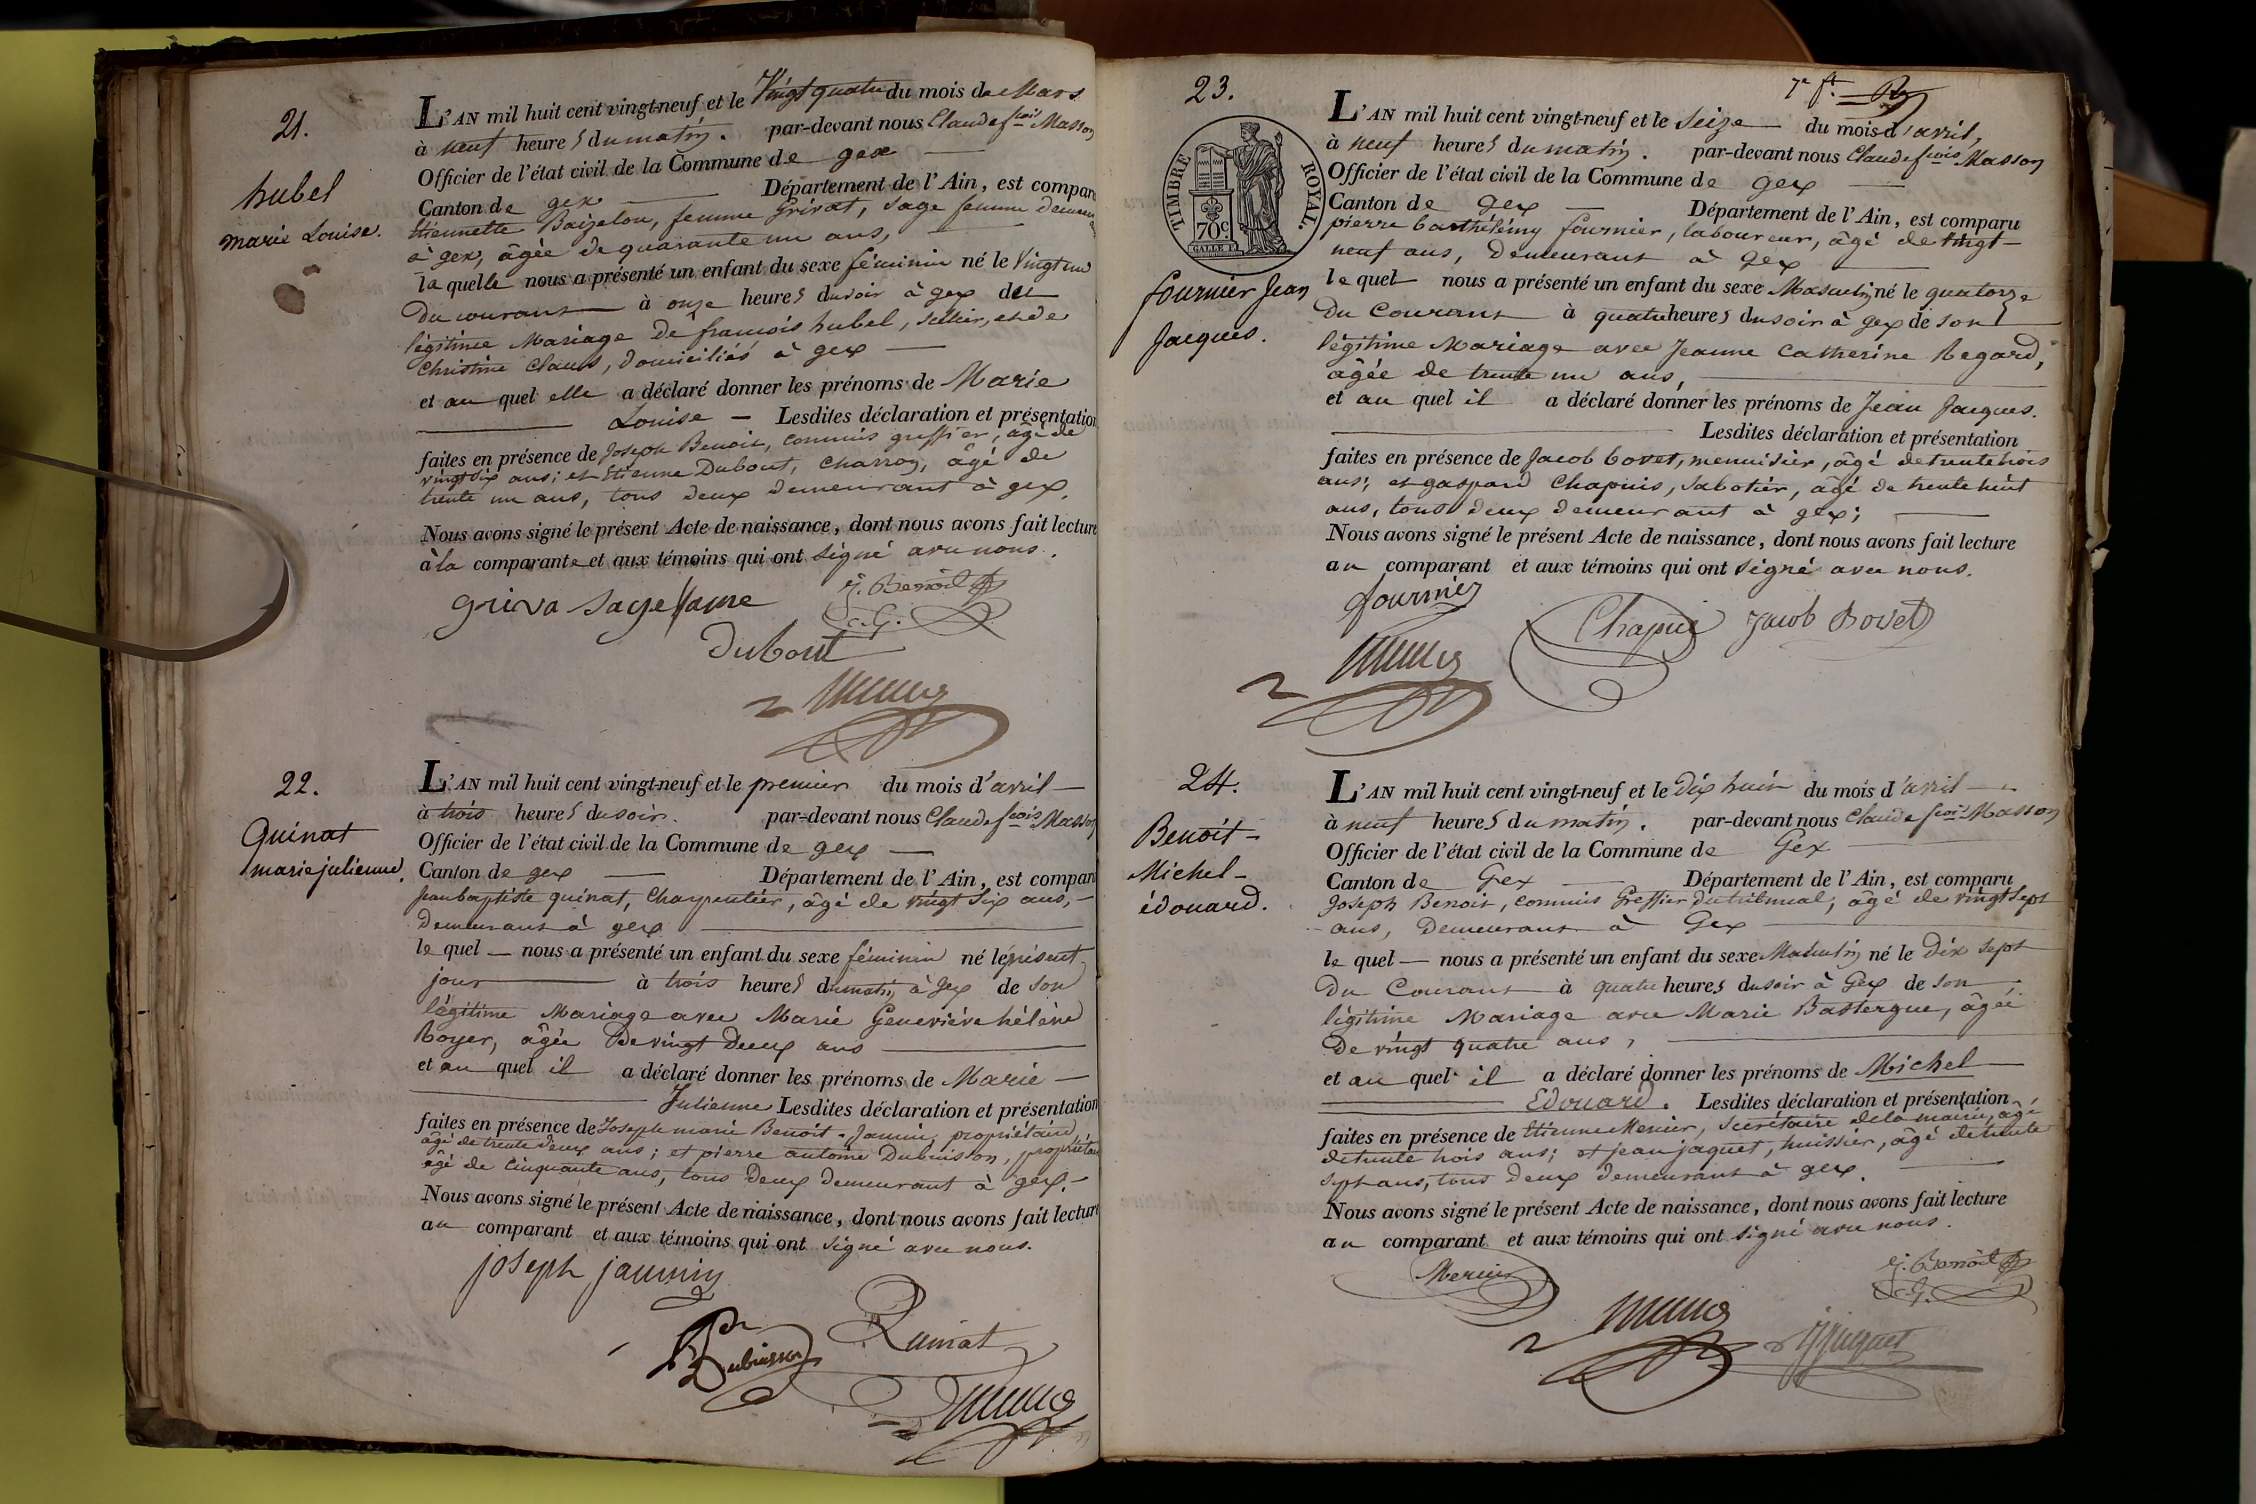 21.
hubel
marie Louise.
L'AN mil huit cent vingt-neuf et le Vingt quatre du mois de Mars
à neuf heures du matin. par-devant nous Claude fcois Masson
Officier de l'état civil de la Commune de gex
Canton de gex Département de l'Ain, est comparu
Etiennette Baizelon, femme Grivat, sage femme demeurant
à gex, âgée de quarante un ans,
la quelle nous a présenté un enfant du sexe féminin né le Vingt un
du courant à onze heures du soir à gex du
légitime Mariage de françois hubel, sellier, et de
Christine Claus, domiciliés à gex
et au quel elle a déclaré donner les prénoms de Marie
Louise — Lesdites déclaration et présentation
faites en présence de Joseph Benoit, commis greffier, âgé de
vingt six ans; et Etienne Dubout, charron, âgé de
trente un ans, tous deux demeurant à gex.
Nous avons signé le présent Acte de naissance, dont nous avons fait lecture
à la comparante et aux témoins qui ont signé avec nous.
griva sage fame
J. Benoit
c. G.
Dubout
22.
Quinat
marie julienne.
L'AN mil huit cent vingt-neuf et le premier du mois d'avril
à trois heures du soir. par-devant nous Claude fcois Masson
Officier de l'état civil de la Commune de gex
Canton de gex Département de l'Ain, est comparu
Jean baptiste quinat, Charpentier, âgé de vingt six ans,
demeurant à gex
le quel — nous a présenté un enfant du sexe féminin né le présent
jour à trois heures du matin à gex de son
légitime Mariage avec Marie Geneviève hélène
Royer, âgée de vingt deux ans
et au quel il a déclaré donner les prénoms de Marie
Julienne Lesdites déclaration et présentation
faites en présence de Joseph marie Benoit-Jannin, propriétaire
âgé de trente deux ans; et pierre antoine Dubuisson, propriétaire
âgé de Cinquante ans, tous deux demeurant à gex.
Nous avons signé le présent Acte de naissance, dont nous avons fait lecture
au comparant et aux témoins qui ont signé avec nous.
joseph jannin
Dubuisson
Quinat
23.
7e ft.
TIMBRE ROYAL.
70c.
fournier Jean
Jacques.
L'AN mil huit cent vingt-neuf et le Seize du mois d'avril,
à neuf heures du matin. par-devant nous Claude fcois Masson
Officier de l'état civil de la Commune de gex
Canton de gex Département de l'Ain, est comparu
pierre barthélémy fournier, laboureur, âgé de vingt-
neuf ans, demeurant à gex
le quel nous a présenté un enfant du sexe Masculin né le quatorze
du Courant à quatre heures du soir à gex de son
légitime Mariage avec Jeanne Catherine Regard,
âgée de trente un ans,
et au quel il a déclaré donner les prénoms de Jean Jacques.
Lesdites déclaration et présentation
faites en présence de Jacob bovet, menuisier, âgé de trente trois
ans; et gaspard Chapuis, Sabotier, âgé de trente huit
ans, tous deux demeurant à gex;
Nous avons signé le présent Acte de naissance, dont nous avons fait lecture
au comparant et aux témoins qui ont signé avec nous.
fournier
Chapuis Jacob Bovet
24.
Benoit-
Michel-
édouard.
L'AN mil huit cent vingt-neuf et le Dix huit du mois d'avril
à neuf heures du matin. par-devant nous Claude fcois Masson
Officier de l'état civil de la Commune de Gex
Canton de Gex Département de l'Ain, est comparu
Joseph Benoit, commis Greffier du tribunal, âgé de vingt sept
ans, Demeurant à Gex
le quel — nous a présenté un enfant du sexe Masculin né le Dix sept
du Courant à quatre heures du soir à Gex de son
légitime Mariage avec Marie Bastergue, âgée
de vingt quatre ans,
et au quel il a déclaré donner les prénoms de Michel
Edouard. Lesdites déclaration et présentation
faites en présence de Etienne Mercier, secrétaire de la mairie, âgé
de trente trois ans; et jean jaquet, huissier, âgé de trente
sept ans, tous deux demeurant à gex.
Nous avons signé le présent Acte de naissance, dont nous avons fait lecture
au comparant et aux témoins qui ont signé avec nous.
Mercier
J. Benoit
c. G.
Jaquet